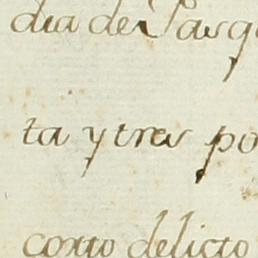 dia de Pasq
ta y tres po
corto delicto